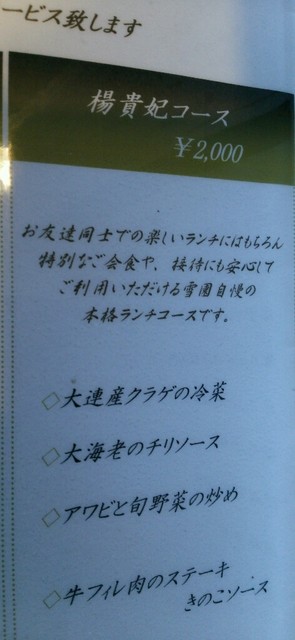 ービス致します
楊貴妃コース
￥2,000
お友達同士での楽しいランチにはもちろん
特別なご会食や、接待にも安心して
ご利用いただける雪園自慢の
本格ランチコースです。
◇大連産クラゲの冷菜
◇大海老のチリソース
◇アワビと旬野菜の炒め
◇牛フィレ肉のステーキ
きのこソース